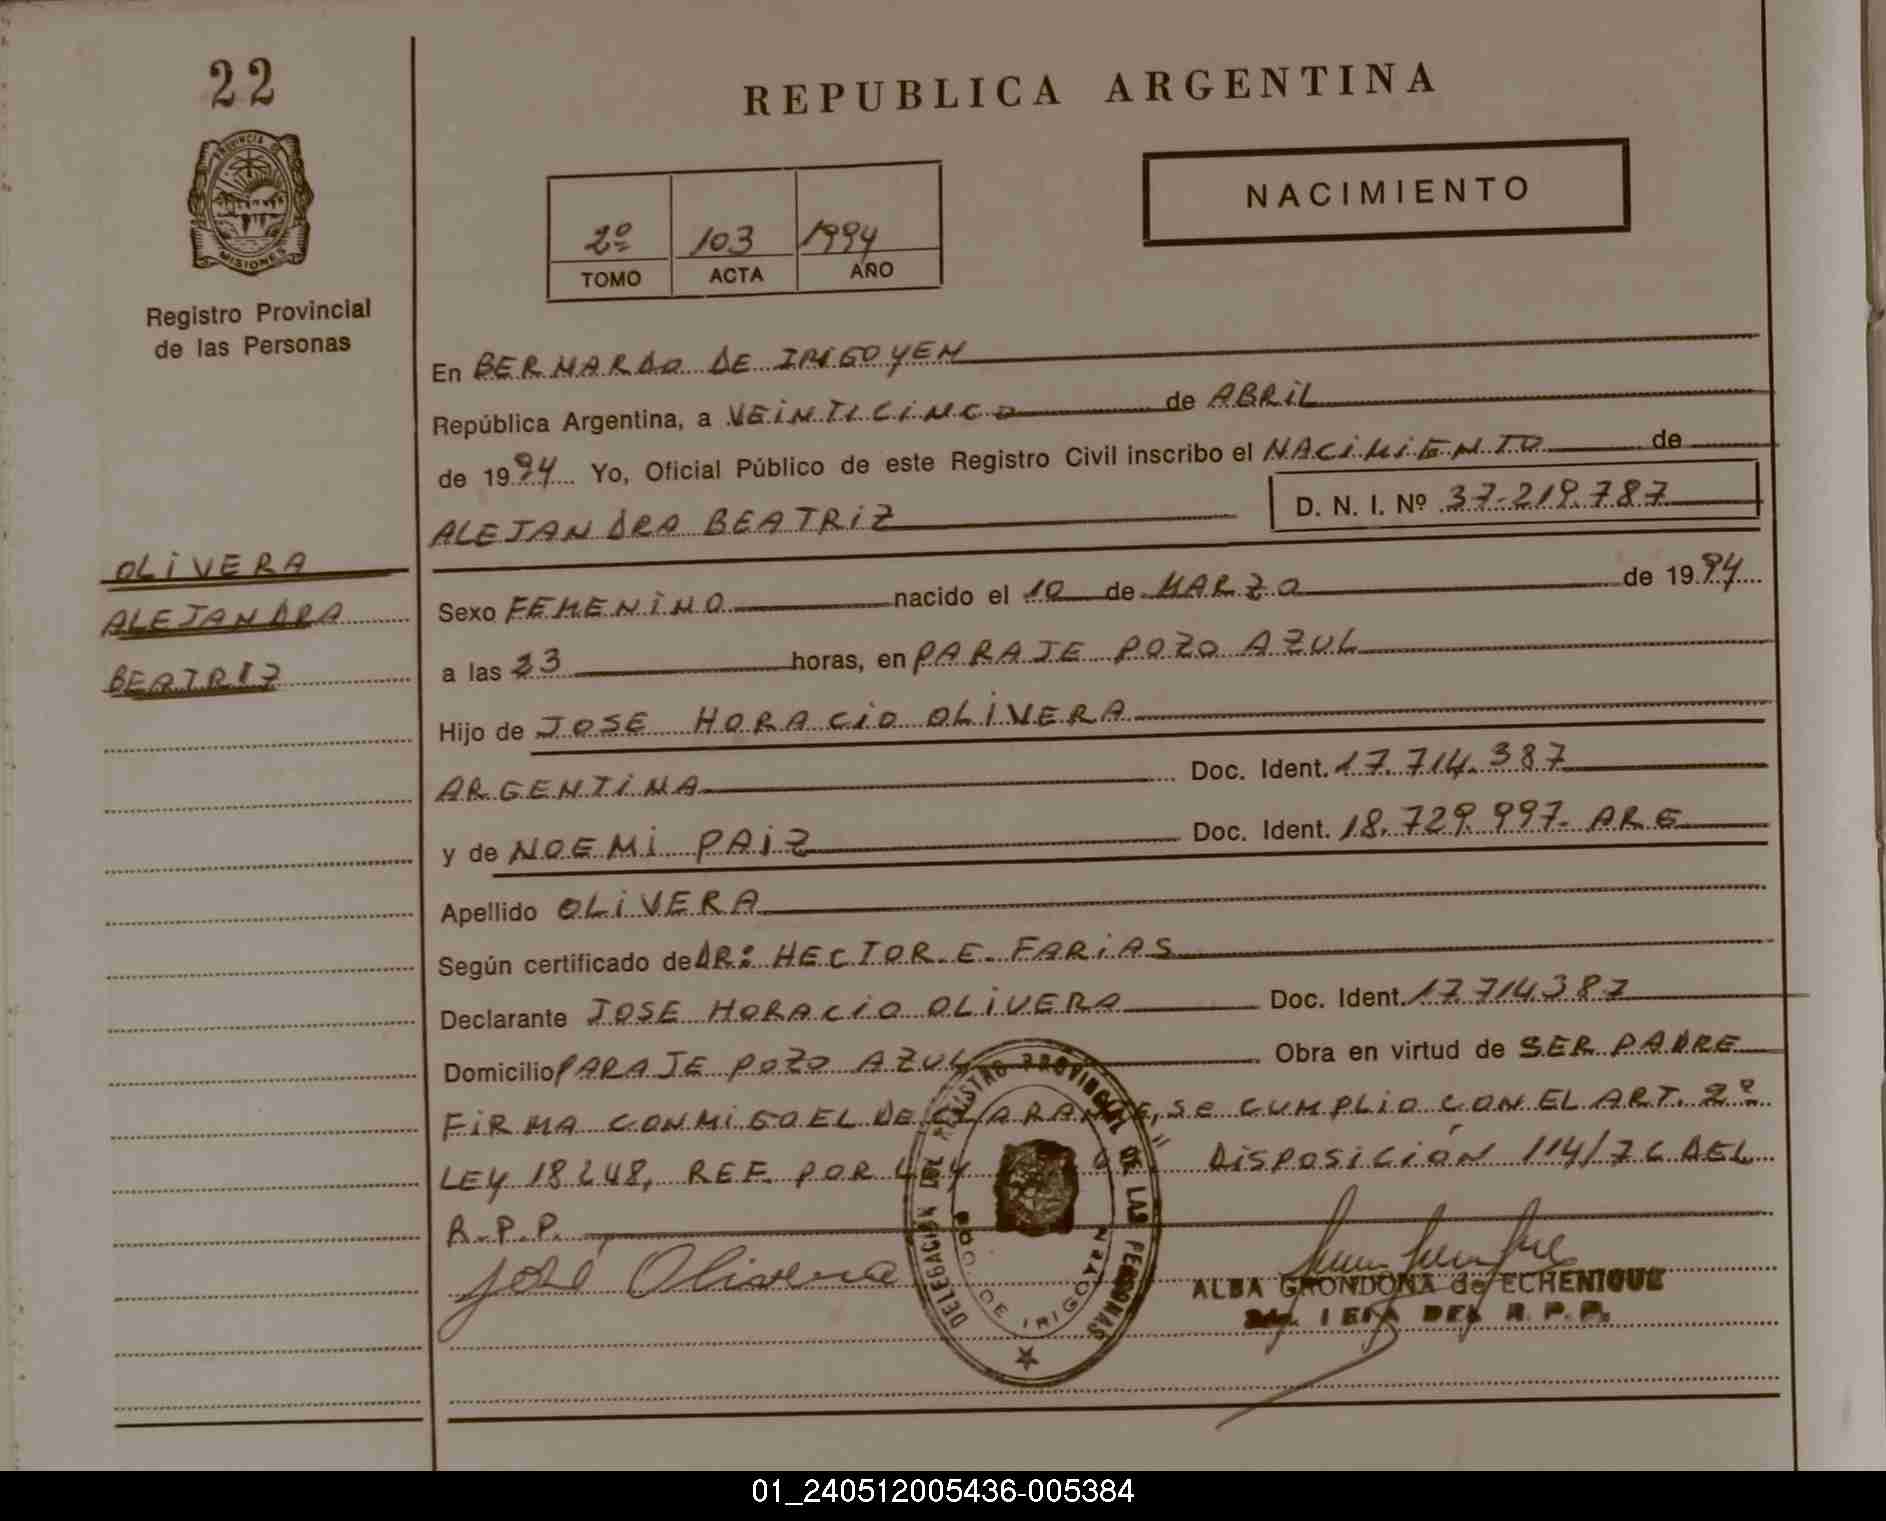 22
PROVINCIA DE
MISIONES
Registro Provincial
de las Personas
OLIVERA
ALEJANDRA
BEATRIZ
REPUBLICA ARGENTINA
NACIMIENTO
2º 103 1994
TOMO ACTA AÑO
En BERNARDO DE IRIGOYEN
República Argentina, a VEINTICINCO de ABRIL
de 1994 Yo, Oficial Público de este Registro Civil inscribo el NACIMIENTO de
ALEJANDRA BEATRIZ D. N. I. Nº 37-219.787
Sexo FEMENINO nacido el 10 de MARZO de 1994
a las 23 horas, en PARAJE POZO AZUL
Hijo de JOSE HORACIO OLIVERA
ARGENTINA Doc. Ident. 17.714.387
y de NOEMI PAIZ Doc. Ident. 18.729.997- ARG
Apellido OLIVERA
Según certificado de DR: HECTOR E. FARIAS
Declarante JOSE HORACIO OLIVERA Doc. Ident. 17.714387
Domicilio PARAJE POZO AZUL Obra en virtud de SER PADRE
FIRMA CONMIGO EL DECLARANTE, SE CUMPLIO CON EL ART. 2º
LEY 18248, REF. POR LEY DISPOSICIÓN 114/76 DEL
R.P.P.
José Olivera
DELEGACION DEL REGISTRO PROVINCIAL DE LAS PERSONAS
BDO. DE IRIGOYEN
ALBA GRONDONA de ECHENIQUE
JEFA DEL R.P.P.
01_240512005436-005384